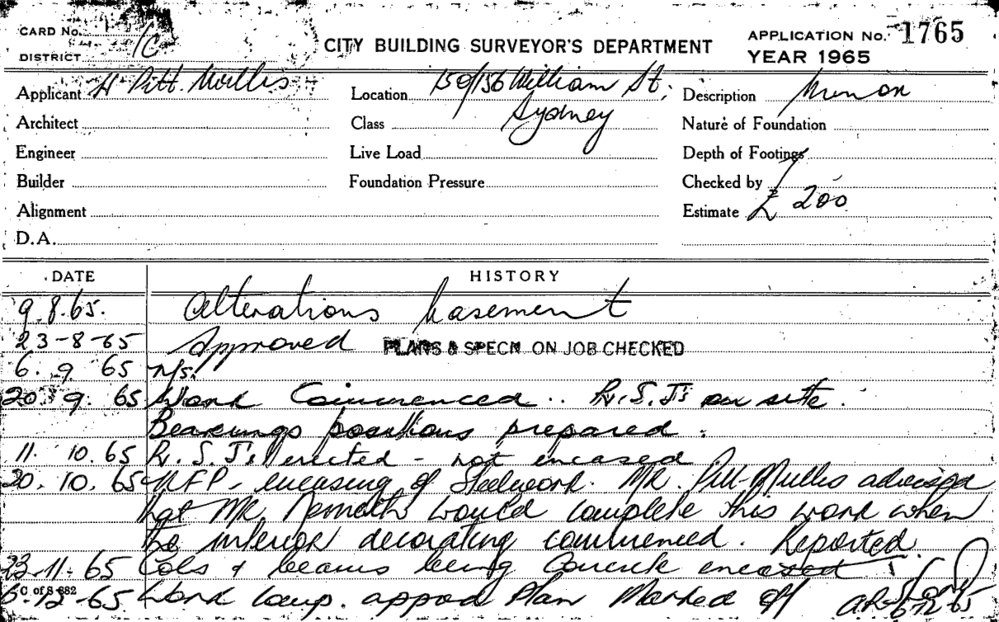 CARD No. 1C
DISTRICT
CITY BUILDING SURVEYOR'S DEPARTMENT
APPLICATION No. 1765
YEAR 1965
Applicant H. Pitt. Mullis
Location 150/156 William St,
Sydney
Description Minor
Architect
Class
Nature of Foundation
Engineer
Live Load
Depth of Footings
Builder
Foundation Pressure
Checked by
Alignment
Estimate £ 200
D.A.
DATE HISTORY
9.8.65. Alterations basement
23-8-65 Approved PLANS & SPECN ON JOB CHECKED
6. 9 65 N/S.
20. 9. 65 Work Commenced.. R.S.J's on site.
Bearings positions prepared.
11. 10. 65 R.S.J's erected - not encased
20. 10. 65 encasing of Steelwork. Mr. Pitt-Mullis advised
that Mr. Nemeth would complete this work when
the interior decorating commenced. Reported.
23.11.65 Cols & beams being Concrete encased
C of S 882
6-12-65 Work Comp. apprd Plan Marked off 6-12-65